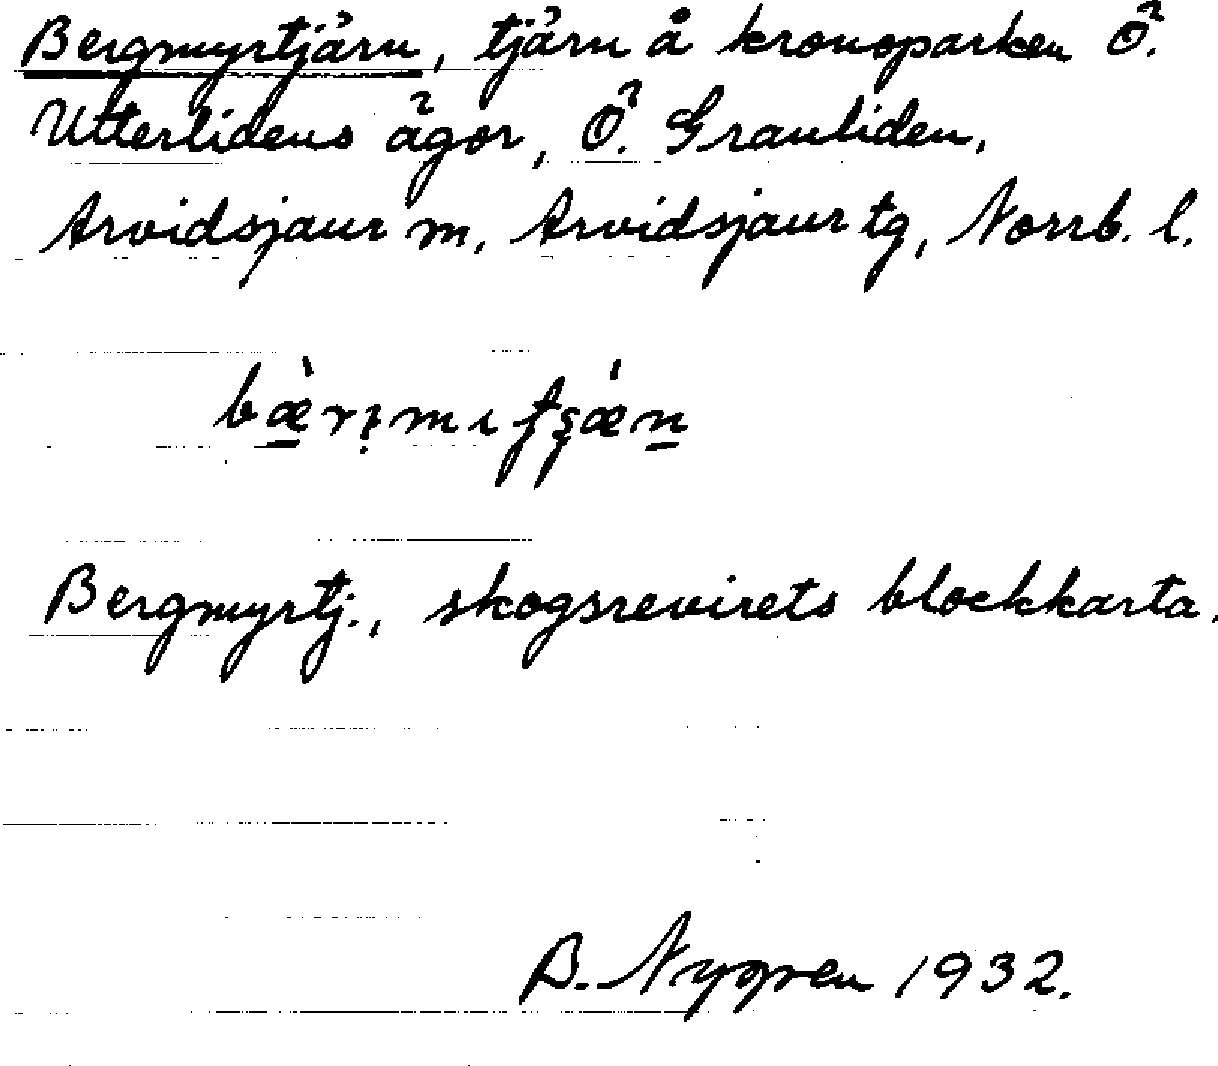 Bergmyrtjärn, tjärn å kronoparken Ö.
Utterlidens ägor, Ö. Granliden,
Arvidsjaur m, Arvidsjaur tg, Norrb. l.
Bergmyrtj., skogsrevirets blockkarta.
B. Nygren 1932.